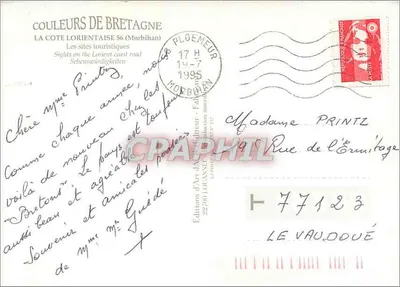 COULEURS DE BRETAGNE
LA COTE LORIENTAISE 56 (Morbihan)
Les sites touristiques
Sights on the Lorient coast road
Sehenswürdigkeiten
PLOEMEUR
17 H
19-7
1995
MORBIHAN
Chère Mme Printz,
Comme chaque année, nous
voilà de nouveau chez les
"Bretons". Le pays est toujours
aussi beau et agréable.
Souvenir et amicales pensées
de Mme Mr Guédé
Editions d'Art
CPRAPHIL
Madame PRINTZ
9 Rue de l'Ermitage
T 77123
LE VAUDOUÉ